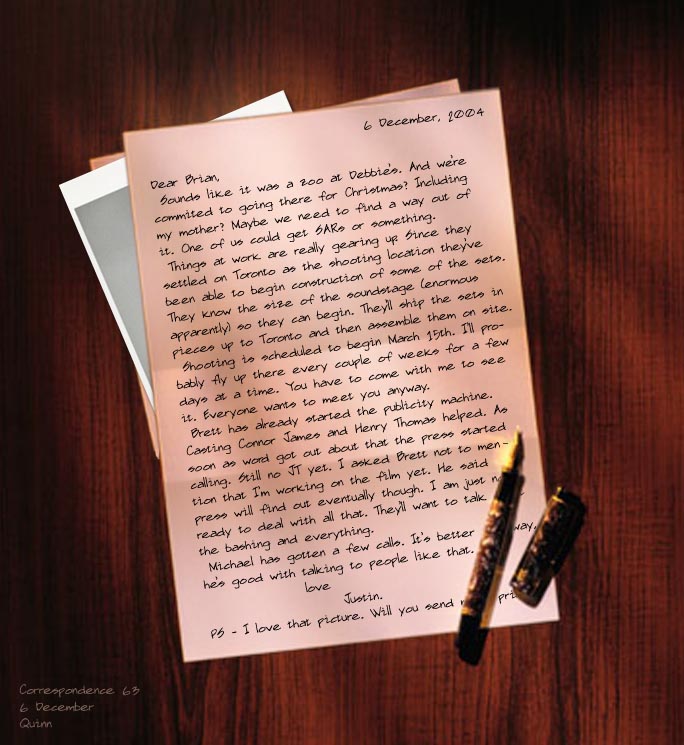 6 December, 2004
Dear Brian,
Sounds like it was a zoo at Debbie's. And we're
commited to going there for Christmas? Including
my mother? Maybe we need to find a way out of
it. One of us could get SARs or something.
Things at work are really gearing up since they
settled on Toronto as the shooting location they've
been able to begin construction of some of the sets.
They know the size of the soundstage (enormous
apparently) so they can begin. They'll ship the sets in
pieces up to Toronto and then assemble them on site.
Shooting is scheduled to begin March 15th. I'll pro-
bably fly up there every couple of weeks for a few
days at a time. You have to come with me to see
it. Everyone wants to meet you anyway.
Brett has already started the publicity machine.
Casting Connor James and Henry Thomas helped. As
soon as word got out about that the press started
calling. Still no JT yet. I asked Brett not to men-
tion that I'm working on the film yet. He said
press will find out eventually though. I am just
ready to deal with all that. They'll want to talk
the bashing and everything.
Michael has gotten a few calls. It's better way.
he's good with talking to people like that.
love
Justin.
PS - I love that picture. Will you send
Correspondence 63
6 December
Quinn